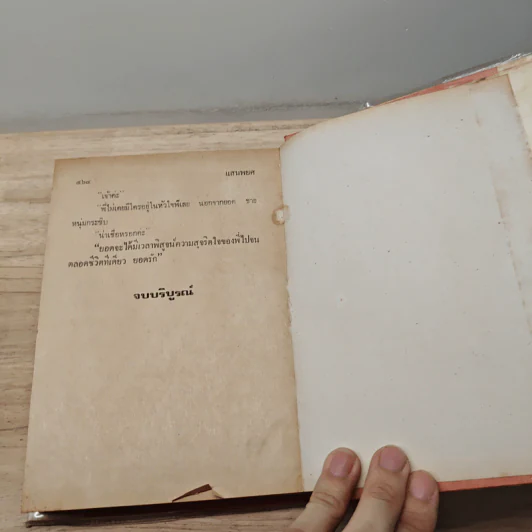 แสนพยศ
"เจ้าค่ะ"
"พี่ไม่เคยมีใครอยู่ในหัวใจพี่เลย นอกจากยอด ชาย
หนุ่มกระซิบ
"น่าเชื่อหรอกค่ะ"
"ยอดจะได้มีเวลาพิสูจน์ความสุจริตใจของพี่ไปจน
ตลอดชีวิตทีเดียว ยอดรัก"
จบบริบูรณ์